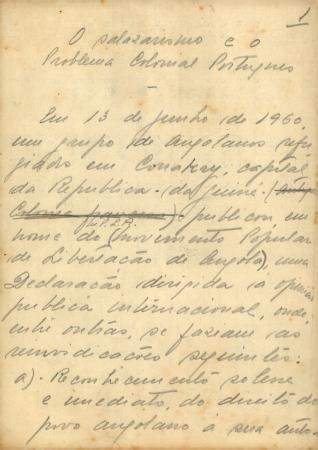 1
O salazarismo e o
Problema Colonial Português
—
Em 13 de junho de 1960,
um grupo de angolanos refu-
giado em Conakry, capital
da Republica da Guiné (antiga
Colonia francesa) publicou em
M.P.L.A.
nome do (Movimento Popular
de Libertação de Angola), uma
Declaração dirigida à opinião
publica internacional, onde
entre outras, se faziam as
reinvidicações seguintes:
a). Reconhecimento solene
e imediato, do direito do
povo angolano à sua auto-